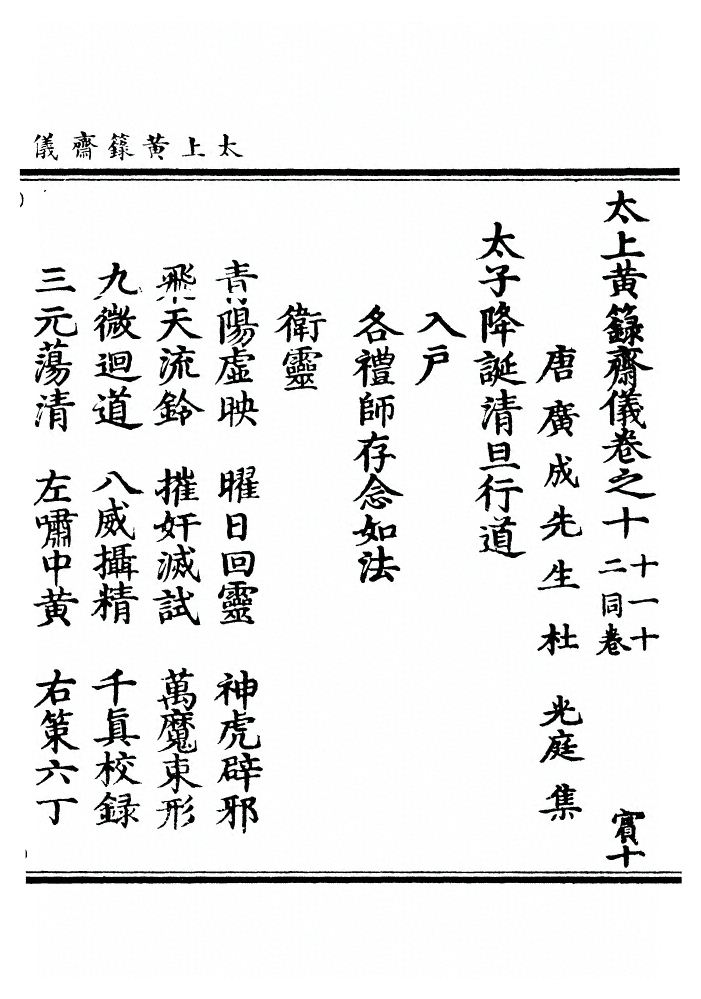 太上黃籙齋儀
太上黃籙齋儀卷之十 十一十二同卷 賓十
唐廣成先生杜光庭集
太子降誕清旦行道
入戶
各禮師存念如法
衛靈
青陽虛映 曜日回靈 神虎辟邪
飛天流鈴 摧奸滅試 萬魔束形
九微迴道 八威攝精 千眞校録
三元蕩清 左嘯中黃 右策六丁